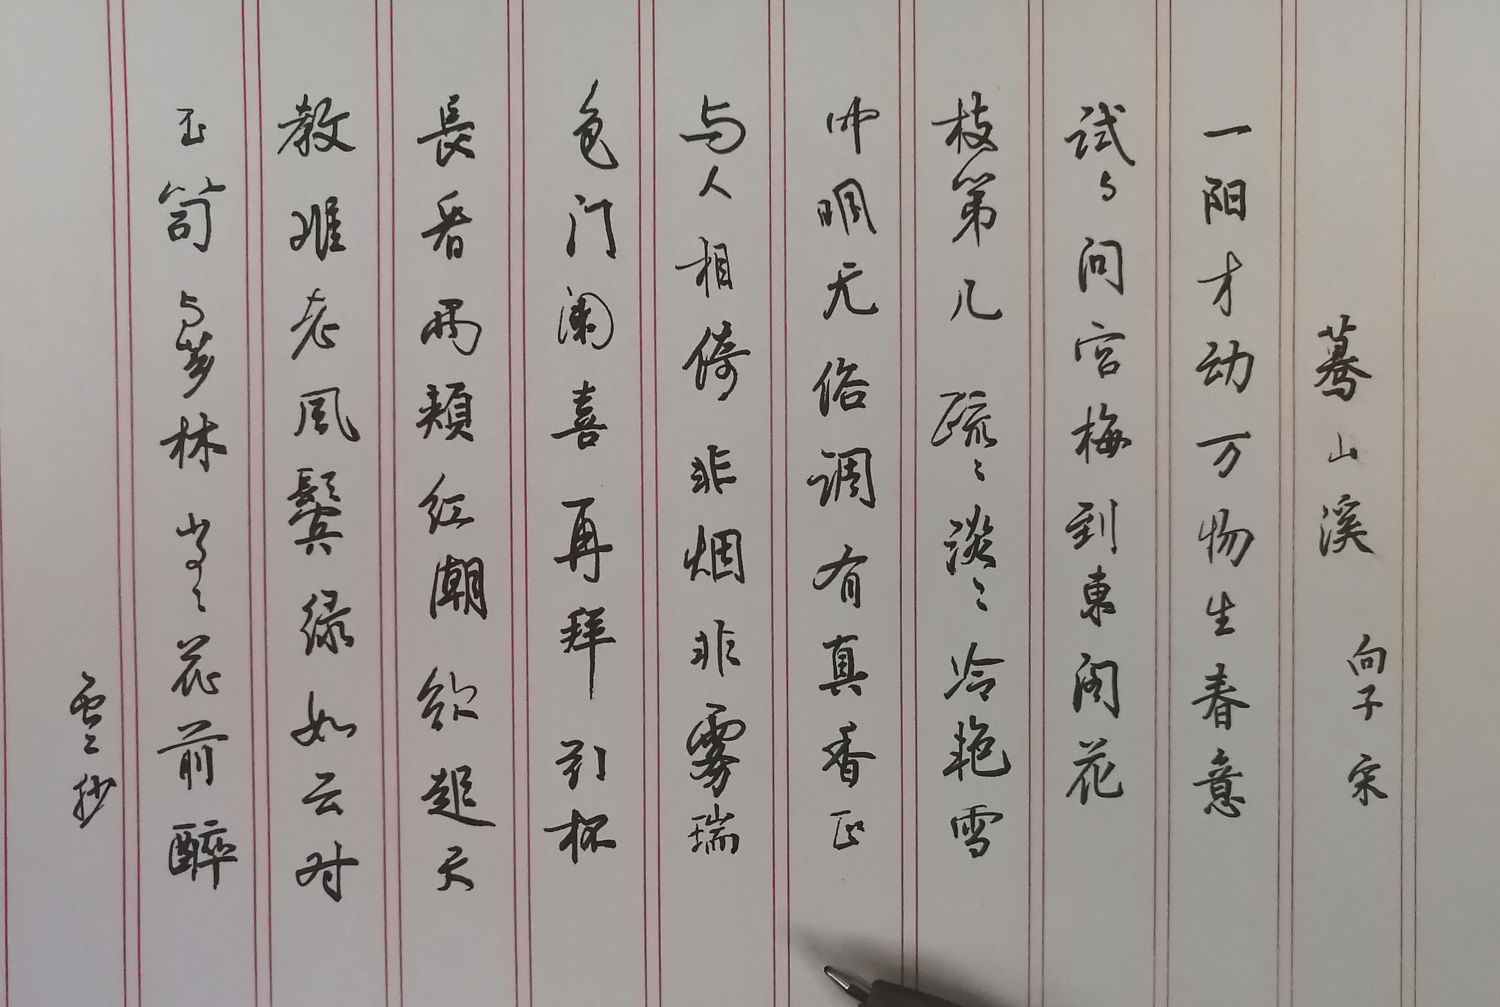 蓦山溪 向子 宋
一阳才动万物生春意
试与问宫梅到東阁花
枝第几疏〻淡〻冷艳雪
中明无俗调有真香正
与人相倚非烟非雾瑞
色门阑喜再拜引杯
長看两颊红潮欲起天
教难老風鬓绿如云对
玉笥与芗林岁〻花前醉
抄